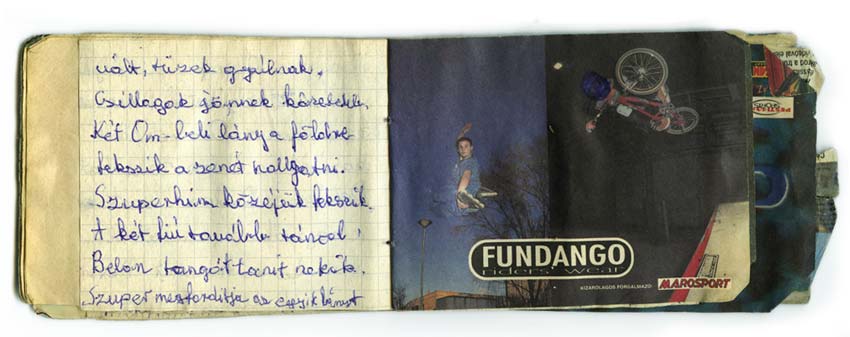 vált, tüzek gyúlnak,
Csillagok jönnek közelebb,
Két Om-beli lány a földre
fekszik a zenét hallgatni.
Szuperhim közéjük fekszik.
A két fiú tovább táncol,
Belon tangót tanít nekik.
Szuper megfordítja az egyik lányt
FUNDANGO
riders' wear
KIZÁRÓLAGOS FORGALMAZÓ:
MAROSPORT